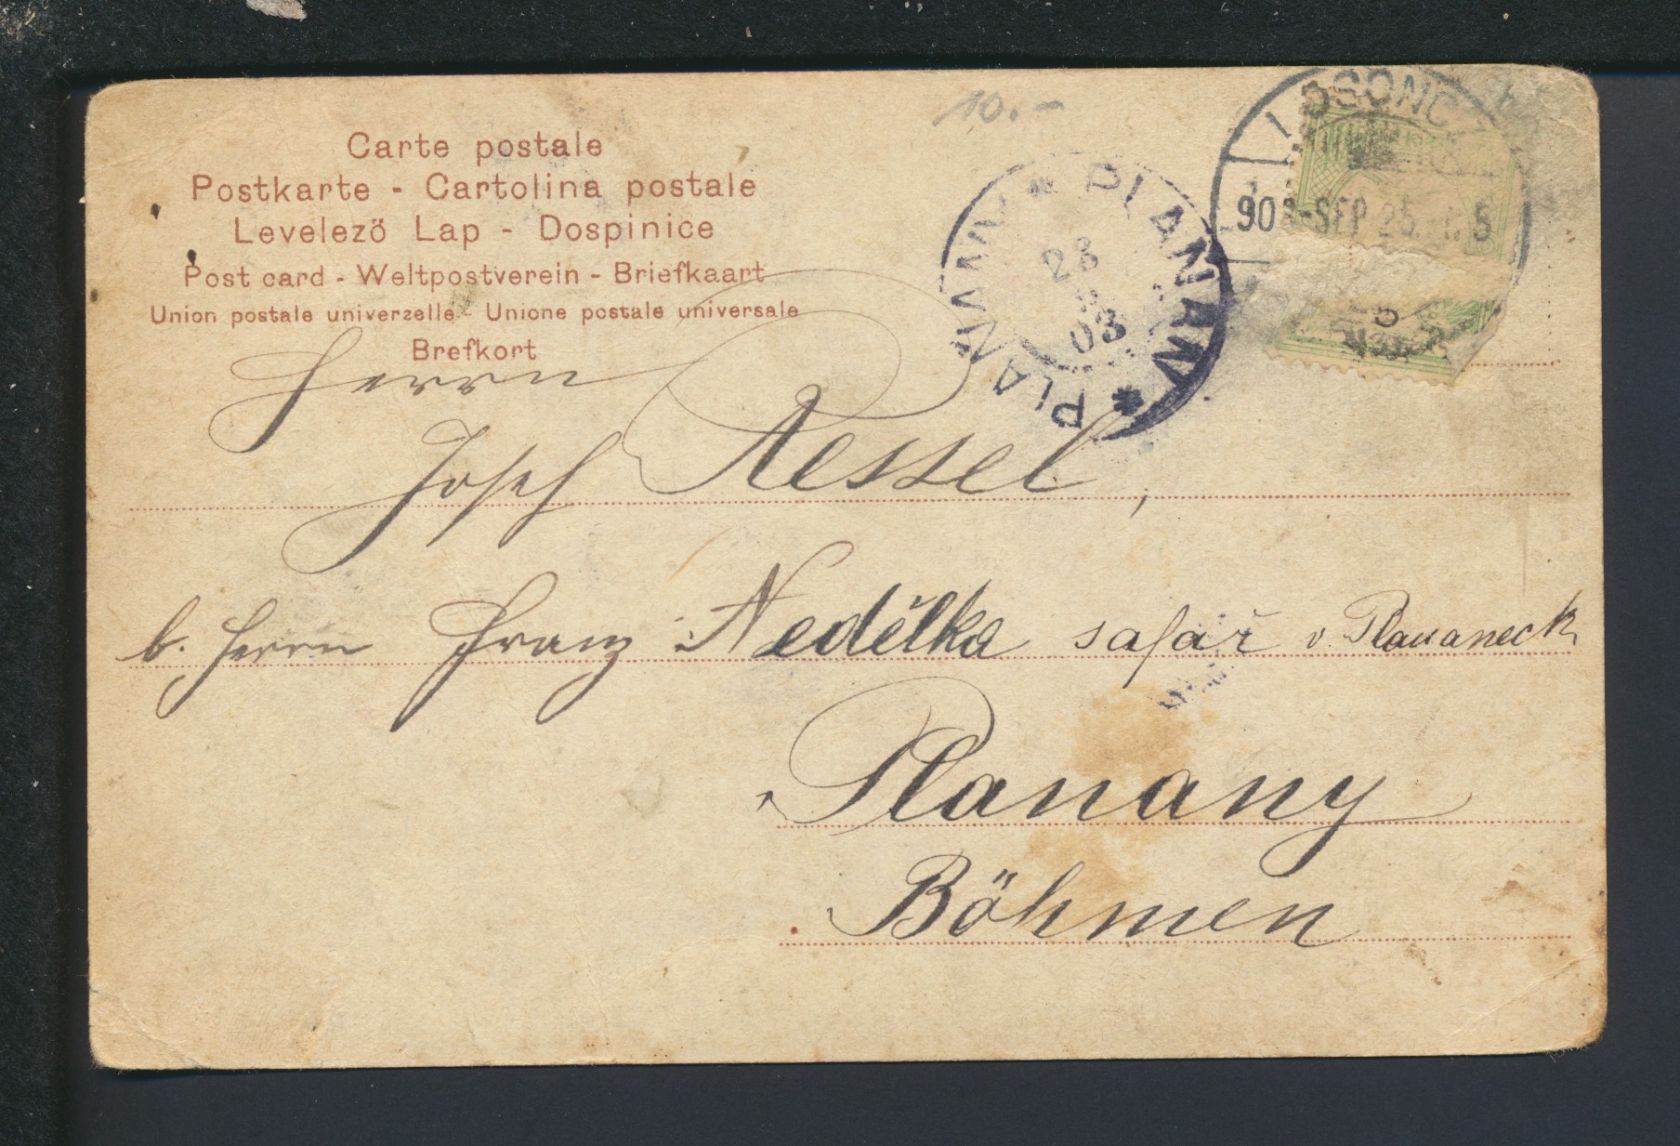 Carte postale
Postkarte - Cartolina postale
Levelező Lap - Dospinice
Post card - Weltpostverein - Briefkaart
Union postale univerzelle - Unione postale universale
Brefkort
10.-
PLANAN * PLAŇANY *
03
LOSONCZ
903-SEP 25.
Herrn
Josef Ressel,
b. Herrn Franz Nedělka safář v. Plananeck
Planany
Böhmen